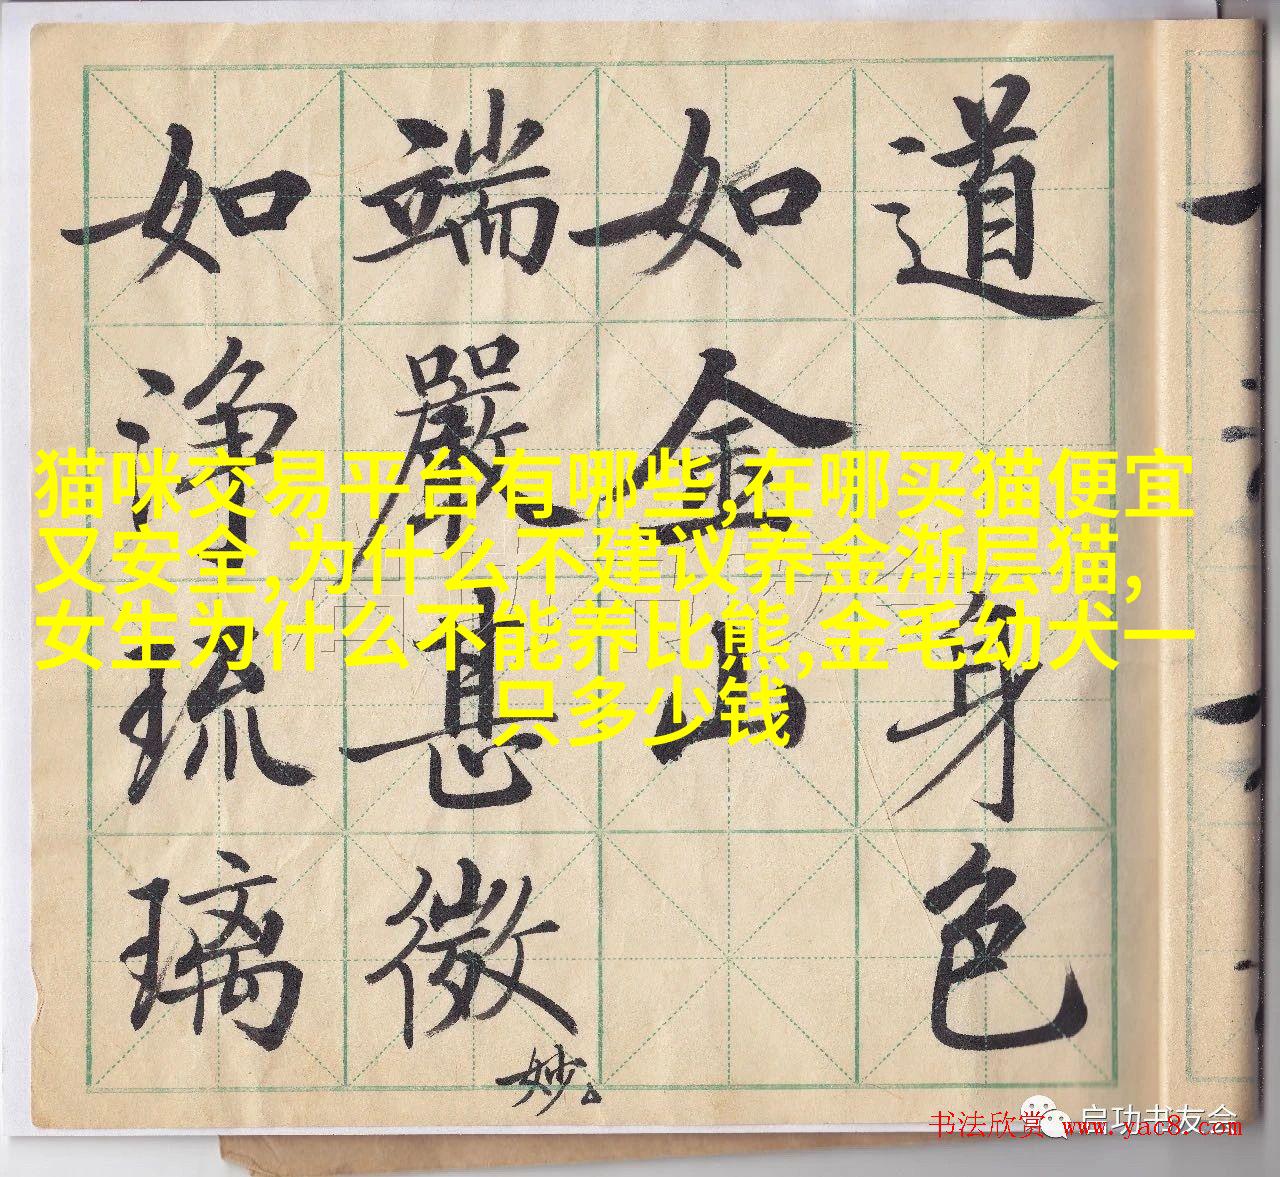 道
身色
如金山
端嚴甚微妙
如淨琉璃
猫咪交易平台有哪些,在哪买猫便宜
又安全,为什么不建议养金渐层猫,
女生为什么不能养比熊,金毛幼犬一
只多少钱
启功书友会
书法欣赏 www.yac8.com